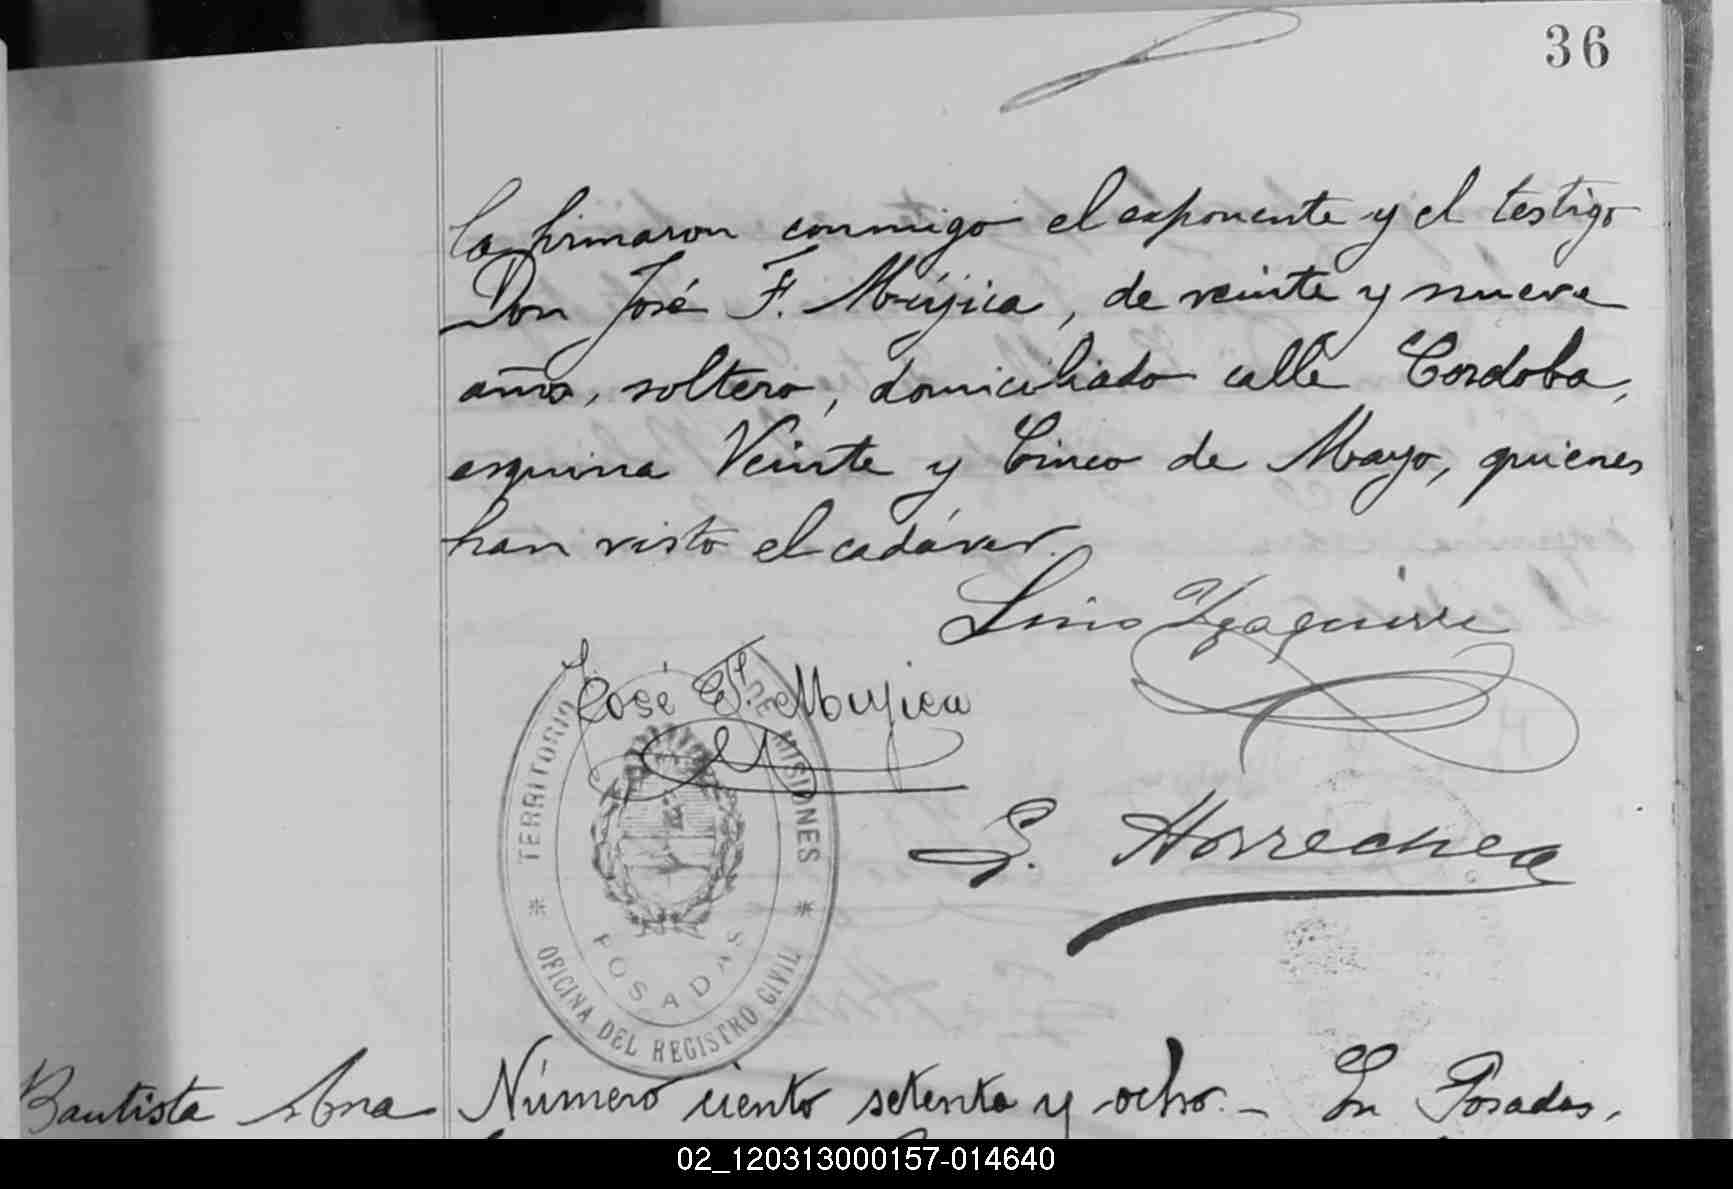 36
la firmaron conmigo el exponente y el testigo
Don José F. Mújica, de veinte y nueve
años, soltero, domiciliado calle Cordoba,
esquina Veinte y Cinco de Mayo, quienes
han visto el cadáver.
Lino Yzaguirre
José F. Mujica
TERRITORIO DE MISIONES
POSADAS
* OFICINA DEL REGISTRO CIVIL *
Bautista Ana
Número ciento setenta y ocho. - En Posadas,
02_120313000157-014640